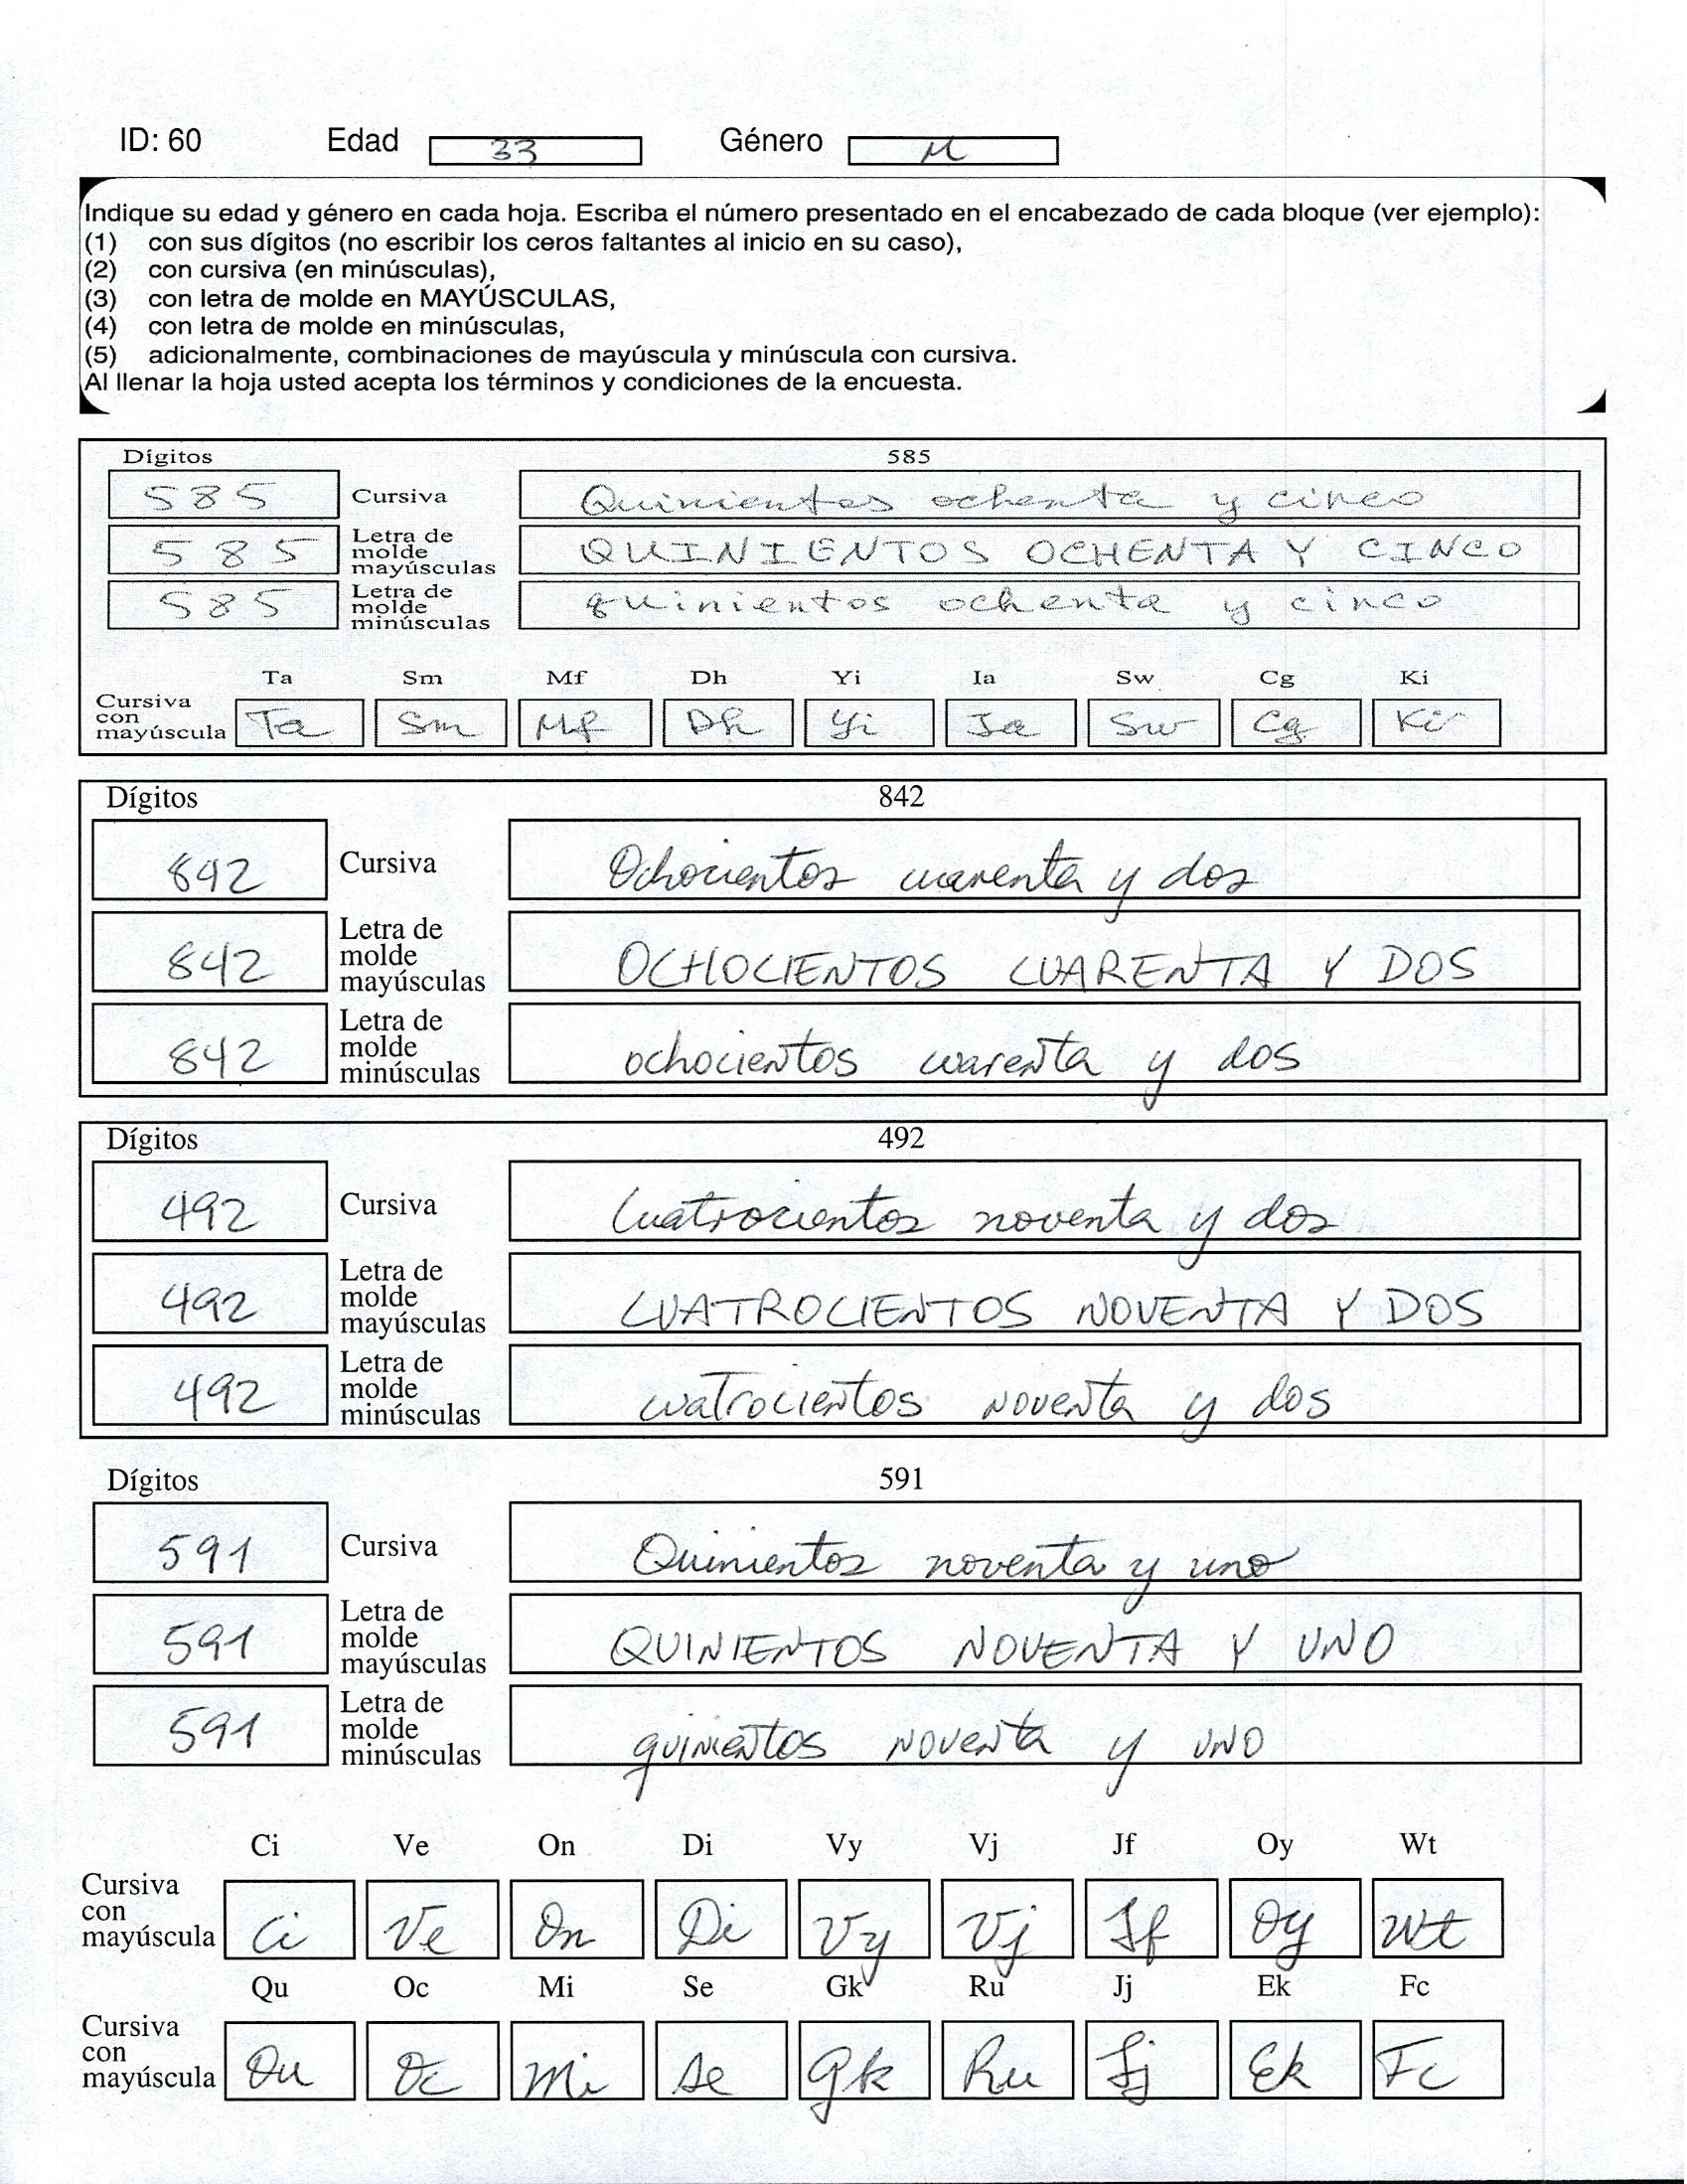 ID: 60 Edad 33 Género M
Indique su edad y género en cada hoja. Escriba el número presentado en el encabezado de cada bloque (ver ejemplo):
(1) con sus dígitos (no escribir los ceros faltantes al inicio en su caso),
(2) con cursiva (en minúsculas),
(3) con letra de molde en MAYÚSCULAS,
(4) con letra de molde en minúsculas,
(5) adicionalmente, combinaciones de mayúscula y minúscula con cursiva.
Al llenar la hoja usted acepta los términos y condiciones de la encuesta.
Dígitos 585
585 Cursiva Quinientos ochenta y cinco
585 Letra de molde mayúsculas QUINIENTOS OCHENTA Y CINCO
585 Letra de molde minúsculas quinientos ochenta y cinco
Ta Sm Mf Dh Yi Ia Sw Cg Ki
Cursiva con mayúscula Ta Sm Mf Dh Yi Ia Sw Cg Ki
Dígitos 842
842 Cursiva Ochocientos cuarenta y dos
842 Letra de molde mayúsculas OCHOCIENTOS CUARENTA Y DOS
842 Letra de molde minúsculas ochocientos cuarenta y dos
Dígitos 492
492 Cursiva Cuatrocientos noventa y dos
492 Letra de molde mayúsculas CUATROCIENTOS NOVENTA Y DOS
492 Letra de molde minúsculas cuatrocientos noventa y dos
Dígitos 591
591 Cursiva Quinientos noventa y uno
591 Letra de molde mayúsculas QUINIENTOS NOVENTA Y UNO
591 Letra de molde minúsculas quinientos noventa y uno
Ci Ve On Di Vy Vj Jf Oy Wt
Cursiva con mayúscula Ci Ve On Di Vy Vj Jf Oy Wt
Qu Oc Mi Se Gk Ru Jj Ek Fc
Cursiva con mayúscula Qu Oc Mi Se Gk Ru Jj Ek Fc